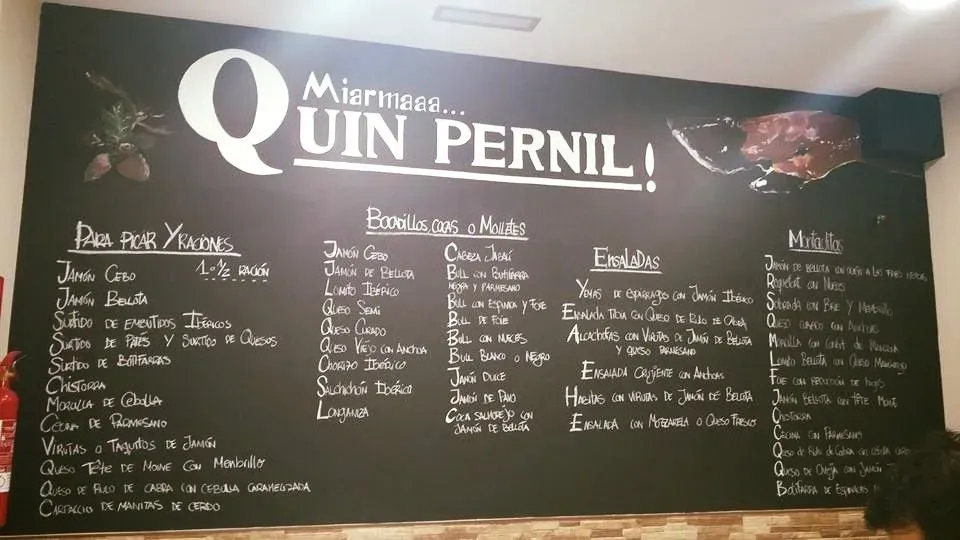 Miarmaaa...
QUIN PERNIL!
PARA PICAR Y RACIONES
1 o ½ RACIÓN
JAMÓN CEBO
JAMÓN BELLOTA
SURTIDO DE EMBUTIDOS IBÉRICOS
SURTIDO DE PATES Y SURTIDO DE QUESOS
SURTIDO DE BOTIFARRAS
CHISTORRA
MORALLA DE CEBOLLA
CECINA DE PARMESANO
VIRUTAS O TAQUITOS DE JAMÓN
QUESO TÊTE DE MOINE CON MEMBRILLO
QUESO DE RULO DE CABRA CON CEBOLLA CARAMELIZADA
CARPACCIO DE MANITAS DE CERDO
BOCADILLOS, COCAS O MOLLETES
JAMÓN CEBO
JAMÓN DE BELLOTA
LOMITO IBÉRICO
QUESO SEMI
QUESO CURADO
QUESO VIEJO CON ANCHOA
CHORIZO IBÉRICO
SALCHICHÓN IBÉRICO
LONGANIZA
CABEZA JABALÍ
BULL CON BUTIFARRA
NEGRA Y PARMESANO
BULL CON ESPINACA Y FOIE
BULL DE FOIE
BULL CON NUECES
BULL BLANCO O NEGRO
JAMÓN DULCE
JAMÓN DE PAVO
COCA SALMOREJO CON
JAMÓN DE BELLOTA
ENSALADAS
YEMAS DE ESPÁRRAGOS CON JAMÓN IBÉRICO
ENSALADA TIBIA CON QUESO DE RULO DE CABRA
ALCACHOFAS CON VIRUTAS DE JAMÓN DE BELLOTA
Y QUESO PARMESANO
ENSALADA CRUJIENTE CON ANCHOAS
HABITAS CON VIRUTAS DE JAMÓN DE BELLOTA
ENSALADA CON MOZZARELA O QUESO FRESCO
Montaditos
JAMÓN DE BELLOTA CON
ROQUEFORT CON NUECES
SOBRASADA CON BRIE Y MEMBRILLO
QUESO CURADO CON ANCHOAS
MORALLA CON DE MANZANA
LOMITO BELLOTA CON QUESO
FOIE CON REDUCCIÓN DE
JAMÓN BELLOTA CON TÊTE MOINE
CHISTORRA
CECINA CON PARMESANO
QUESO DE RULO DE CABRA CON CEBOLLA
QUESO DE OVEJA CON JAMÓN
BOTIFARRA DE ESPINACAS